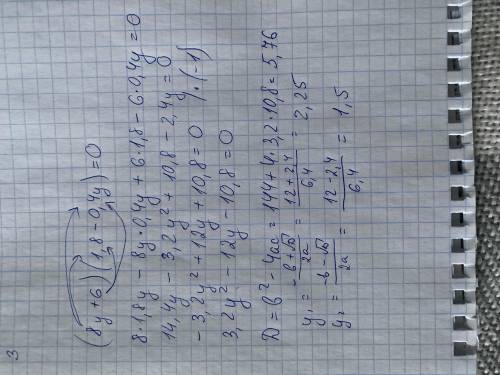 3
(8y+6)(1,8-0,4y)=0
8·1,8y - 8y·0,4y + 6·1,8 - 6·0,4y=0
14,4y - 3,2y² + 10,8 - 2,4y=0
-3,2y² + 12y + 10,8 = 0 /·(-1)
3,2y² - 12y - 10,8 = 0
D = b² - 4ac = 144 + 4·3,2·10,8 = 5,76
y₁ = (-b+√D)/2a = (12+2,4)/6,4 = 2,25
y₂ = (-b-√D)/2a = (12-2,4)/6,4 = 1,5